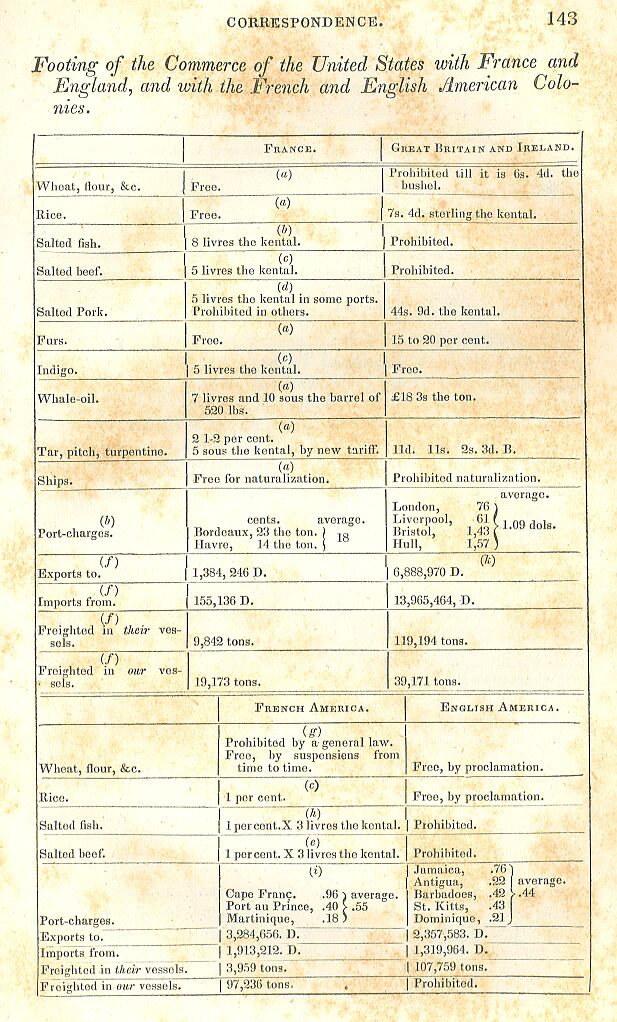 CORRESPONDENCE. 143
Footing of the Commerce of the United States with France and
England, and with the French and English American Colo-
nies.
FRANCE. GREAT BRITAIN AND IRELAND.
Wheat, flour, &c. (a) Free. Prohibited till it is 6s. 4d. the
bushel.
Rice. (a) Free. 7s. 4d. sterling the kental.
Salted fish. (b) 8 livres the kental. Prohibited.
Salted beef. (c) 5 livres the kental. Prohibited.
(d)
5 livres the kental in some ports.
Salted Pork. Prohibited in others. 44s. 9d. the kental.
Furs. (a) Free. 15 to 20 per cent.
Indigo. (c) 5 livres the kental. Free.
Whale-oil. (a) 7 livres and 10 sous the barrel of £18 3s the ton.
520 lbs.
(a)
2 1-2 per cent.
Tar, pitch, turpentine. 5 sous the kental, by new tariff. 11d. 11s. 2s. 3d. B.
Ships. (a) Free for naturalization. Prohibited naturalization.
average.
London, 76
(b) cents. average. Liverpool, 61
Port-charges. Bordeaux, 23 the ton. 18 Bristol, 1,43 1.09 dols.
Havre, 14 the ton. Hull, 1,57
(f) (k)
Exports to. 1,384, 246 D. 6,888,970 D.
(f)
Imports from. 155,136 D. 13,965,464, D.
(f)
Freighted in their ves-
sels. 9,842 tons. 119,194 tons.
(f)
Freighted in our ves-
sels. 19,173 tons. 39,171 tons.
FRENCH AMERICA. ENGLISH AMERICA.
(g)
Prohibited by a general law.
Free, by suspensiens from
Wheat, flour, &c. time to time. Free, by proclamation.
(c)
Rice. 1 per cent. Free, by proclamation.
(h)
Salted fish. 1 per cent. X 3 livres the kental. Prohibited.
(e)
Salted beef. 1 per cent. X 3 livres the kental. Prohibited.
(i) Jamaica, .76
Antigua, .22 average.
Cape Franç. .96 average. Barbadoes, .42 .44
Port au Prince, .40 .55 St. Kitts, .43
Port-charges. Martinique, .18 Dominique, .21
Exports to. 3,284,656. D. 2,357,583. D.
Imports from. 1,913,212. D. 1,319,964. D.
Freighted in their vessels. 3,959 tons. 107,759 tons.
Freighted in our vessels. 97,236 tons. Prohibited.